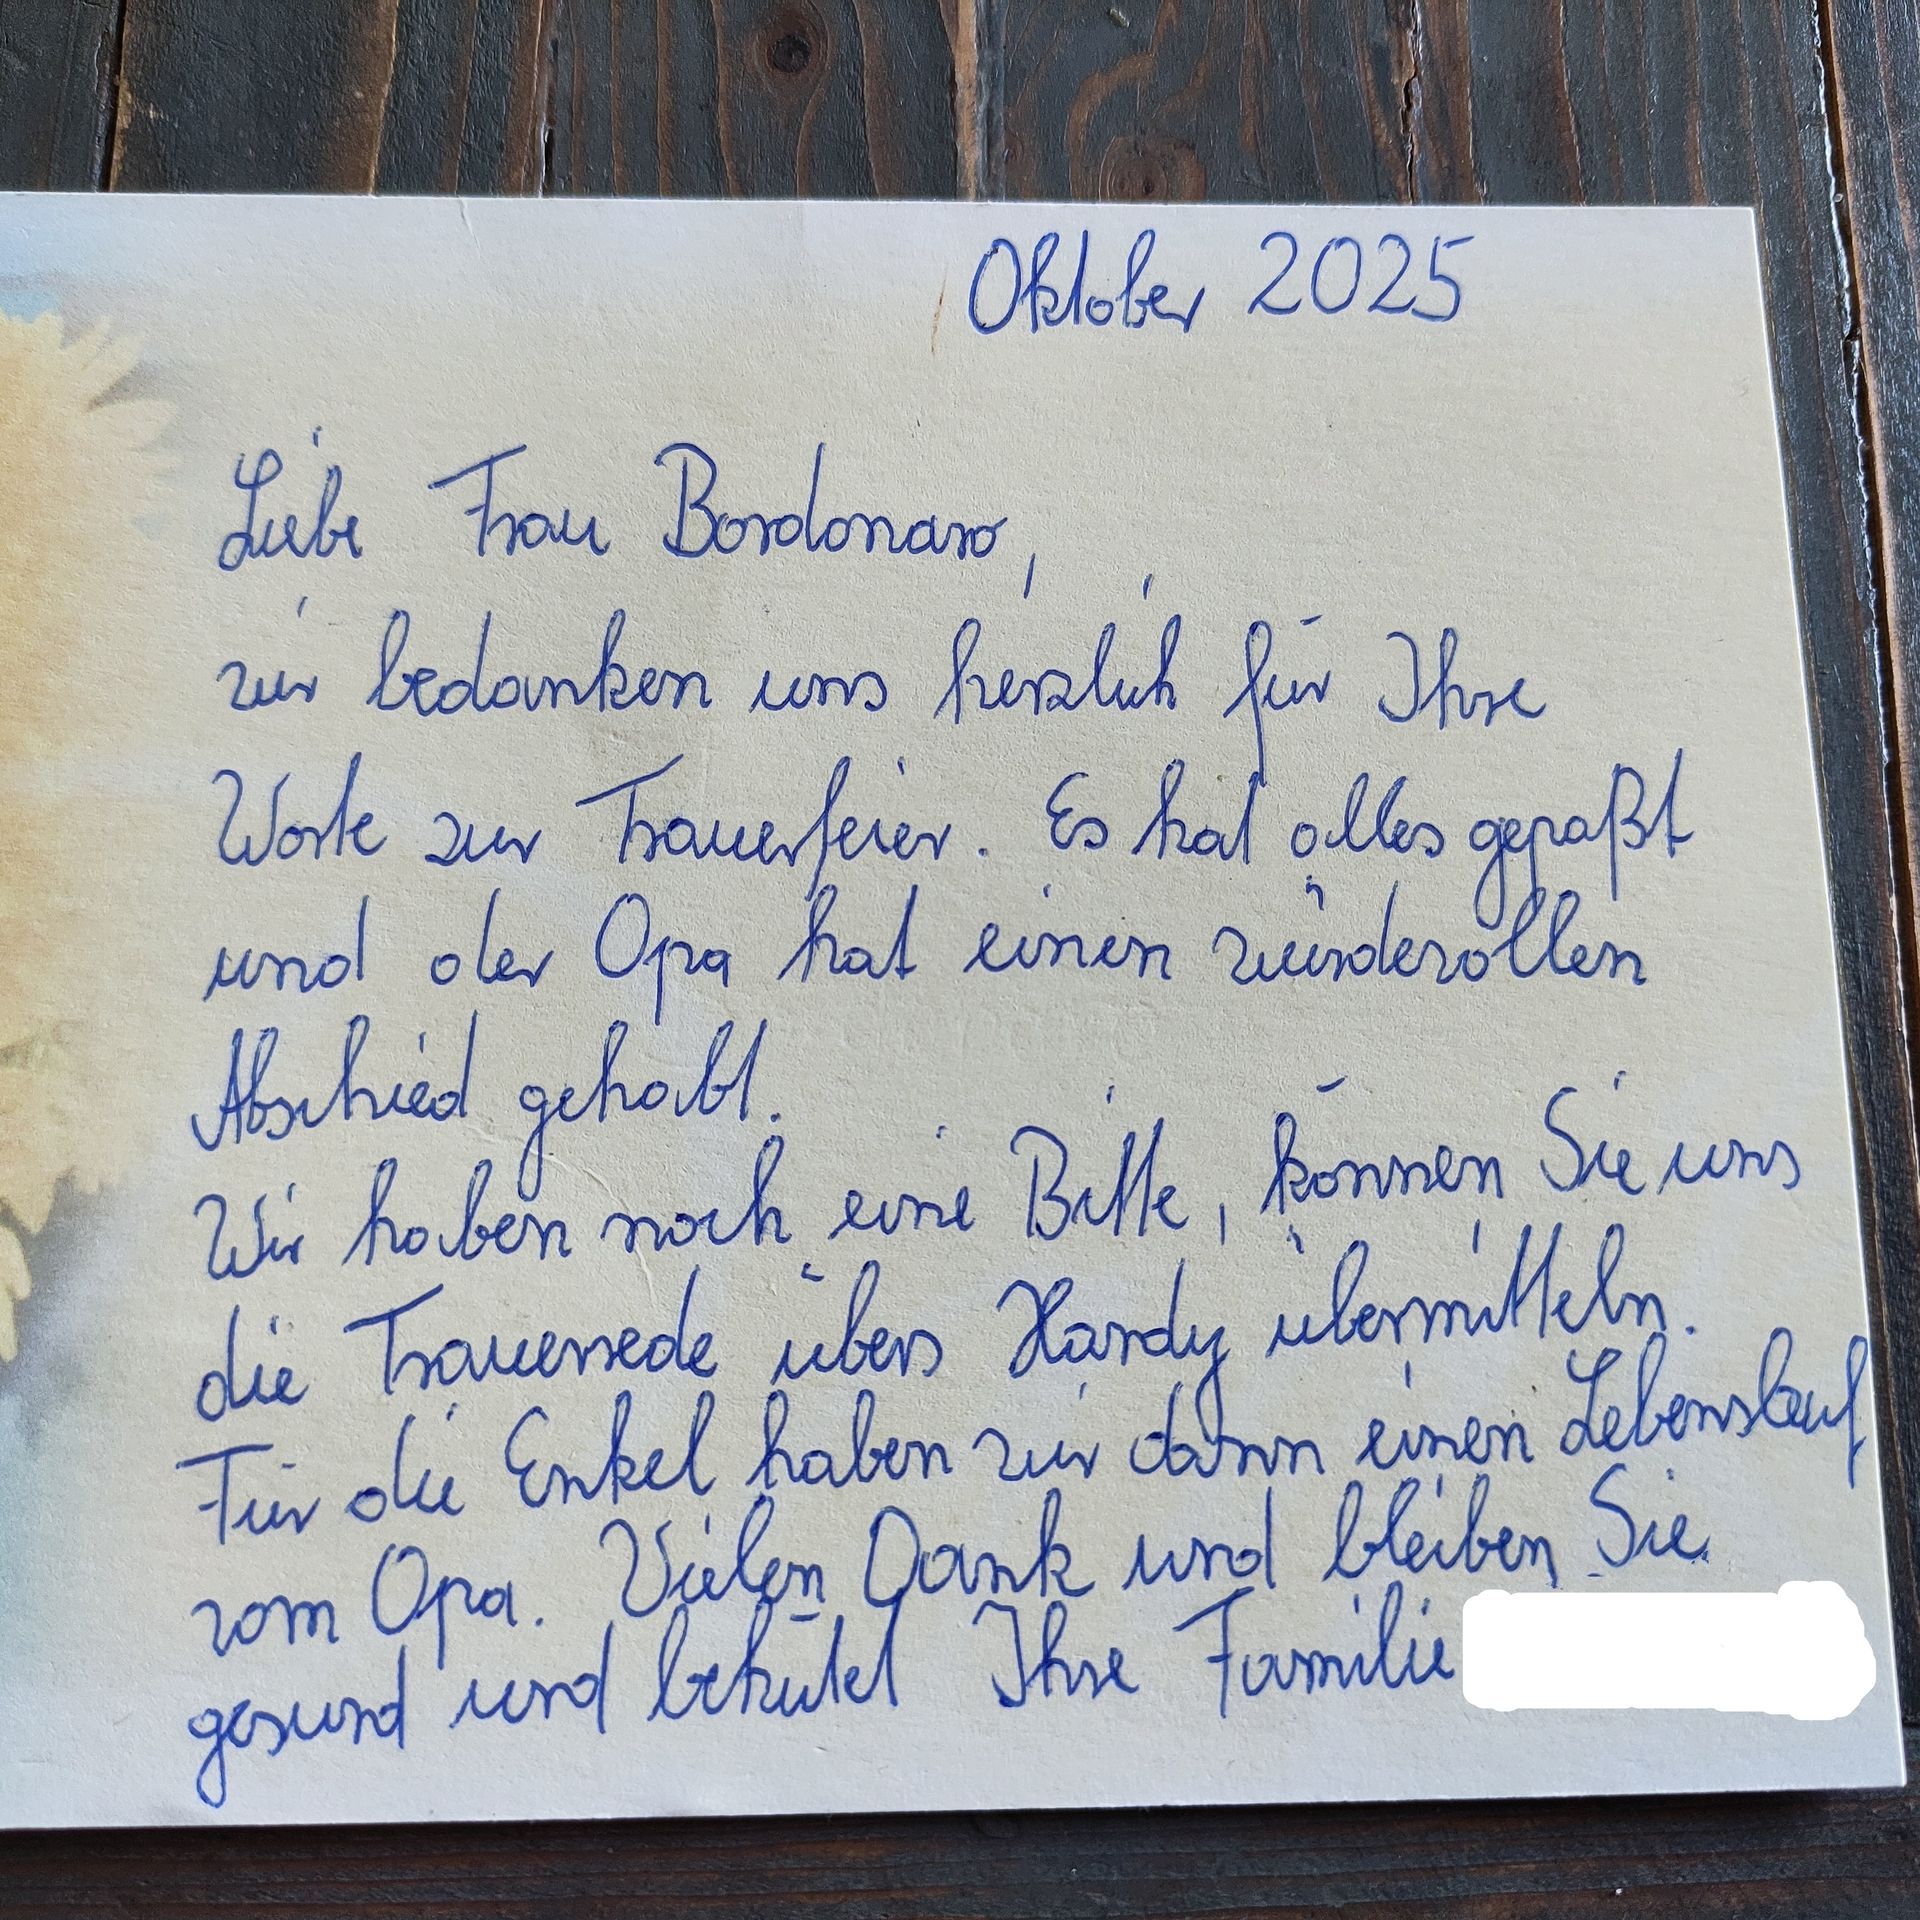 Oktober 2025
Liebe Frau Bordonaro,
wir bedanken uns herzlich für Ihre
Worte zur Trauerfeier. Es hat alles gepaßt
und der Opa hat einen würdevollen
Abschied gehabt.
Wir haben noch eine Bitte, können Sie uns
die Trauerrede übers Handy übermitteln.
Für die Enkel haben wir dann einen Lebenslauf
vom Opa. Vielen Dank und bleiben Sie
gesund und behütet Ihre Familie